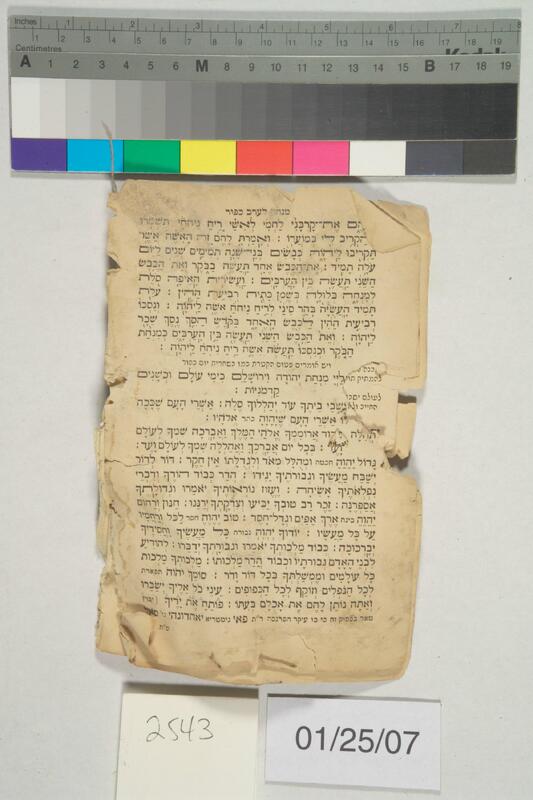 Inches 1 2 3 4 5 6 7 8
Centimetres 1 2 3 4 5 6 7 8 9 10 11 12 13 14 15 16 17 18 19
A 1 2 3 4 5 6 M 8 9 10 11 12 13 14 15 B 17 18 19
לערב כפור
אֶת־קָרְבָּנִי לַחְמִי לְאִשַּׁי רֵיחַ נִיחֹחִי תִּשְׁמְרוּ
לְהַקְרִיב לִי בְּמוֹעֲדוֹ : וְאָמַרְתָּ לָהֶם זֶה הָאִשֶּׁה אֲשֶׁר
תַּקְרִיבוּ לַיהוָֹה כְּבָשִׂים בְּנֵי־שָׁנָה תְמִימִם שְׁנַיִם לַיּוֹם
עֹלָה תָמִיד : אֶת־הַכֶּבֶשׂ אֶחָד תַּעֲשֶׂה בַבֹּקֶר וְאֵת הַכֶּבֶשׂ
הַשֵּׁנִי תַּעֲשֶׂה בֵּין הָעַרְבָּיִם : וַעֲשִׂירִית הָאֵיפָה סֹלֶת
לְמִנְחָה בְּלוּלָה בְּשֶׁמֶן כָּתִית רְבִיעִת הַהִין : עֹלַת
תָּמִיד הָעֲשֻׂיָה בְּהַר סִינַי לְרֵיחַ נִיחֹחַ אִשֶּׁה לַיהוָֹה : וְנִסְכּוֹ
רְבִיעִת הַהִין לַכֶּבֶשׂ הָאֶחָד בַּקֹּדֶשׁ הַסֵּךְ נֶסֶךְ שֵׁכָר
לַיהוָֹה : וְאֵת הַכֶּבֶשׂ הַשֵּׁנִי תַּעֲשֶׂה בֵּין הָעַרְבָּיִם כְּמִנְחַת
הַבֹּקֶר וּכְנִסְכּוֹ תַּעֲשֶׂה אִשֵּׁה רֵיחַ נִיחֹחַ לַיהוָֹה :
ויש אומרים פטום הקטרת כמו בשחרית יום כפור
מִנְחַת יְהוּדָה וִירוּשָׁלָיִם כִּימֵי עוֹלָם וּכְשָׁנִים
קַדְמֹנִיּוֹת :
בֵיתֶךָ עוֹד יְהַלְלוּךָ סֶּלָה : אַשְׁרֵי הָעָם שֶׁכָּכָה
אַשְׁרֵי הָעָם שֶׁיְהֹוָה כתר אֱלֹהָיו :
תְּהִלָּה אֲרוֹמִמְךָ אֱלֹהַי הַמֶּלֶךְ וַאֲבָרְכָה שִׁמְךָ לְעוֹלָם
וָעֶד : בְּכָל יוֹם אֲבָרְכֶךָּ וַאֲהַלְלָה שִׁמְךָ לְעוֹלָם וָעֶד :
גָּדוֹל יְהֹוָה חכמה וּמְהֻלָּל מְאֹד וְלִגְדֻלָּתוֹ אֵין חֵקֶר : דּוֹר לְדוֹר
יְשַׁבַּח מַעֲשֶׂיךָ וּגְבוּרֹתֶיךָ יַגִּידוּ : הֲדַר כְּבוֹד הוֹדֶךָ וְדִבְרֵי
נִפְלְאֹתֶיךָ אָשִׂיחָה : וֶעֱזוּז נוֹרְאוֹתֶיךָ יֹאמֵרוּ וּגְדוּלָּתְךָ
אֲסַפְּרֶנָּה : זֵכֶר רַב טוּבְךָ יַבִּיעוּ וְצִדְקָתְךָ יְרַנֵּנוּ : חַנּוּן וְרַחוּם
יְהֹוָה בינה אֶרֶךְ אַפַּיִם וּגְדָל־חָסֶד : טוֹב יְהֹוָה חסד לַכֹּל וְרַחֲמָיו
עַל כָּל מַעֲשָׂיו : יוֹדוּךָ יְהֹוָה גבורה כָּל מַעֲשֶׂיךָ וַחֲסִידֶיךָ
יְבָרְכוּכָה : כְּבוֹד מַלְכוּתְךָ יֹאמֵרוּ וּגְבוּרָתְךָ יְדַבֵּרוּ : לְהוֹדִיעַ
לִבְנֵי הָאָדָם גְּבוּרֹתָיו וּכְבוֹד הֲדַר מַלְכוּתוֹ : מַלְכוּתְךָ מַלְכוּת
כָּל עוֹלָמִים וּמֶמְשַׁלְתְּךָ בְּכָל דּוֹר וָדֹר : סוֹמֵךְ יְהֹוָה תפארת
לְכָל הַנֹּפְלִים וְזוֹקֵף לְכָל הַכְּפוּפִים : עֵינֵי כֹל אֵלֶיךָ יְשַׂבֵּרוּ
וְאַתָּה נוֹתֵן לָהֶם אֶת אָכְלָם בְּעִתּוֹ : פּוֹתֵחַ אֶת יָדֶיךָ
בפסוק זה כי בו עיקר הפרנסה ר״ת פאי
2543
01/25/07